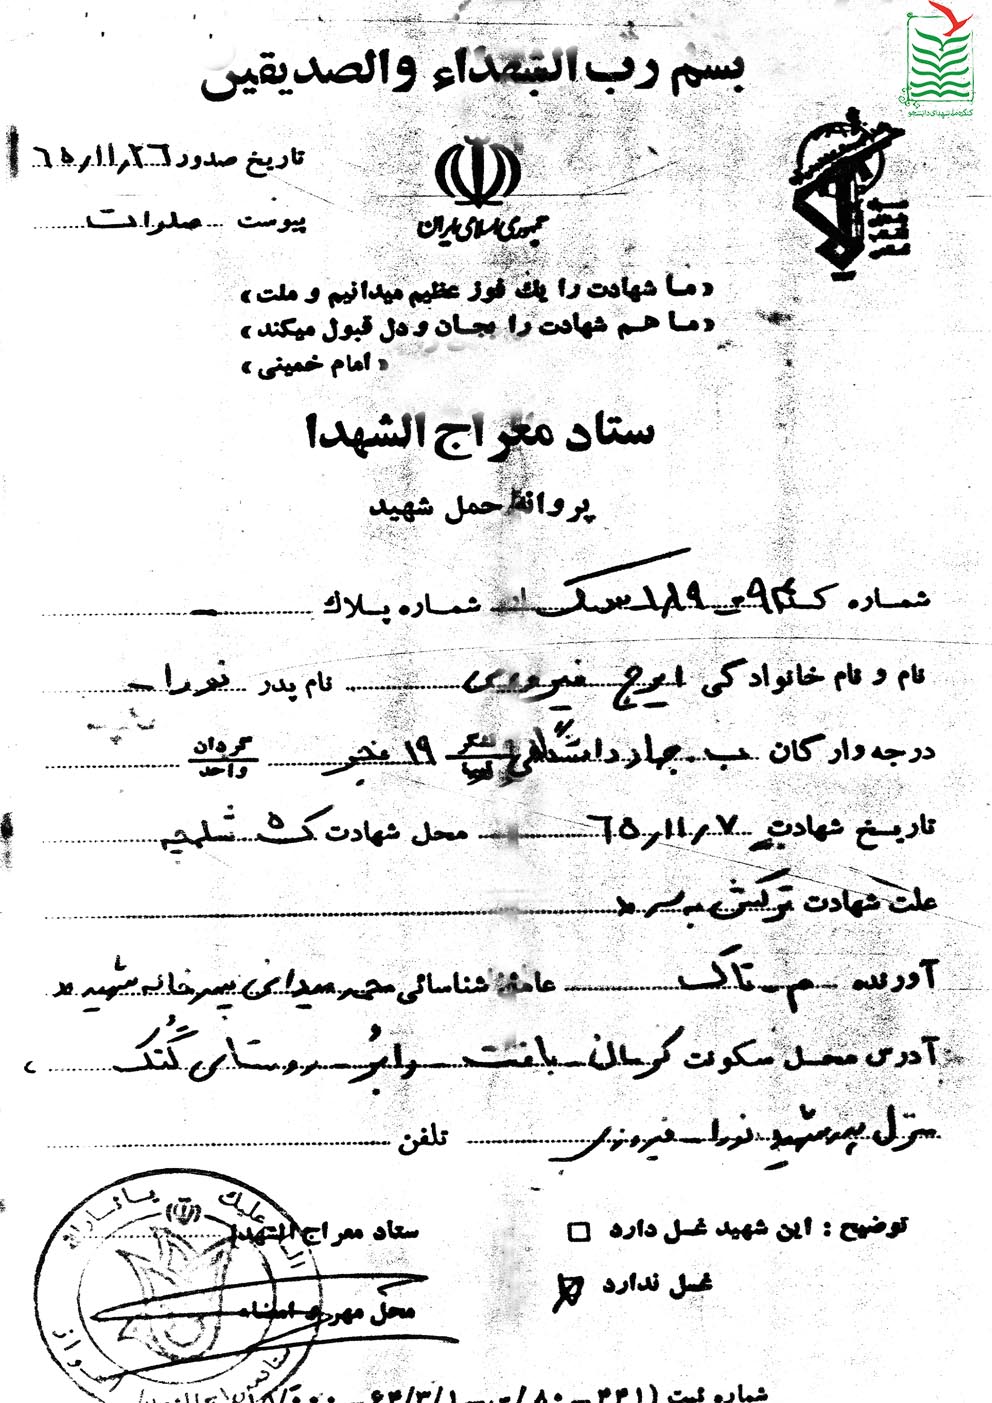 بسم رب الشهداء والصدیقین
کنگره ملی شهدای دانشجو
تاریخ صدور ٦٥/١١/٢٦
پیوست صلوات
جمهوری اسلامی ایران
«ما شهادت را یك فوز عظیم میدانیم و ملت»
«ما هم شهادت را بجان و دل قبول میکند»
«امام خمینی»
ستاد معراج الشهدا
پروانهٔ حمل شهید
شماره شماره پلاك ـ
نام و نام خانوادگی ایرج فیروزی نام پدر نورا
درجه وارگان ب. جهاد دانشگاهی لشگر تیپ ۱۹ فجر گردان واحد
تاریخ شهادت ٦٥/١١/٧ محل شهادت ک ۵ شلمچه
علت شهادت ترکش به سر
آورنده م ـ تاک عامل شناسائی محمد میدانی پسرخاله شهید
آدرس محل سکونت کرمان ـ بافت ـ رابُر ـ روستای گُنک
منزل پدر شهید نورا فیروزی تلفن
توضیح : این شهید غسل دارد
غسل ندارد
ستاد معراج الشهدا
محل مهر و امضاء
السلام علیك یا ثارالله
اهواز
شماره ثبت